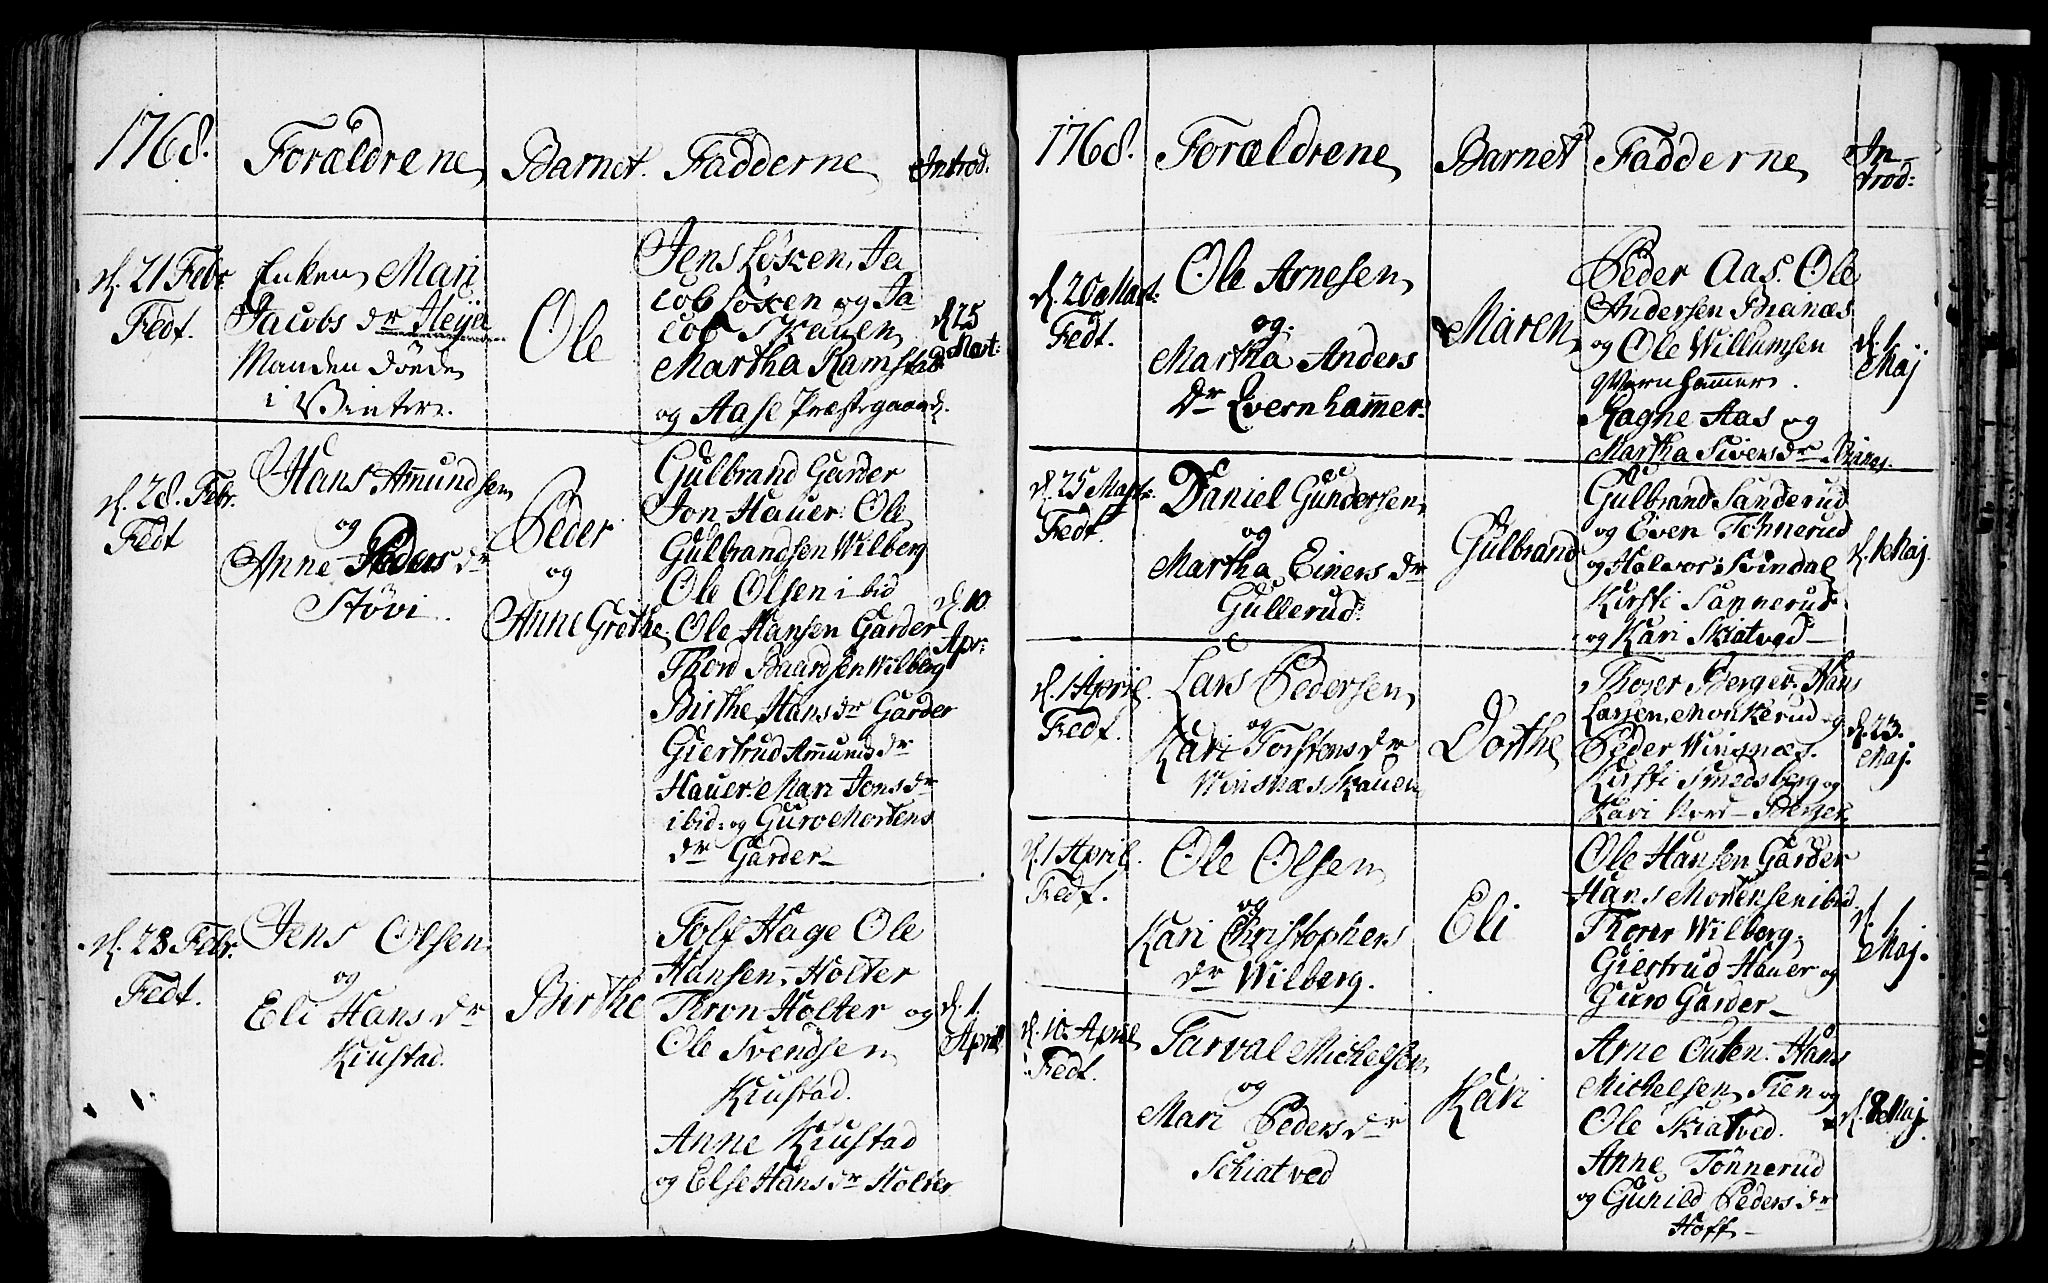 1768. Forældrene Barnet. Fadderne Introd.
d. 21 Febr
Fedt.
Enken Mari
Jacobs dr Heyer
Manden döede
i Vinter.
Ole
Jens Løken, Ja
cob Løken og Ja
cob Skauen
Martha Ramstad
og Aase Præstegaard.
d 25
Mart:
d. 28. Febr.
Fedt
Hans Amundsen
og
Anne Peders dr
Støvi.
Peder
og
Anne Grethe
Gulbrand Garder
Jon Hauer. Ole
Gulbrandsen Wilberg
Ole Olsen ibid
Ole Hansen Garder
Thord Baardsen Wilberg
Birthe Hans dr Garder
Giertrud Amunds dr
Hauer. Mari Jons dr
ibid: og Guro Mortens
dr Garder
d. 10
Apr:
d. 28 Febr.
Fedt.
Jens Olsen
og
Eli Hans dr
Kiustad.
Birthe
Tolf Hage Ole
Hansen Holter
Thron Holter og
Ole Svendsen
Kiustad.
Anne Kiustad
og Else Hans dr Holter
d. 1.
April
1768. Forældrene Barnet Fadderne In
trod:
d. 20 Mart:
Fedt.
Ole Arnesen
og
Martha Anders
dr Qvernhammer
Maren
Peder Aas. Ole
Andersen Branæs
og Ole Willumsen
qvernhammer.
Ragne Aas og
Martha Sivers dr
d. 1
Maj
d. 25 Mart:
Fedt.
Daniel Gundersen
og
Martha Einers dr
Gullerud.
Gulbrand
Gulbrand Sanderud
og Even Tønnerud
og Halvor Svindal
Kirsti Sannerud
og Kari Skiatved
d. 1 Maj.
d. 1 April.
Fedt.
Lars Pedersen
og
Kari Torstens dr
Winsnæs Skauen
Dorthe
Thorer Berger. Hans
Larsen Monkerud og
Peder Winsnæs.
Kirsti Smedsberg og
Kari Nord-Berger
d. 23.
Maj.
d. 1 April.
Fedt.
Ole Olsen
og
Kari Christophers
dr Wilberg.
Eli
Ole Hansen Garder
Hans Mortensen ibid
Thorer Wilberg.
Giertrud Hauer og
Guro Garder
d. 1
Maj.
d. 10. April
Fedt.
Tarval Michelsen
og
Mari Peders dr
Schiatved
Kari
Arne Outen. Hans
Michelsen Tien og
Ole Skiatved.
Anne Tönnerud
og Gunild Peders dr
Hoff
d. 8 Maj